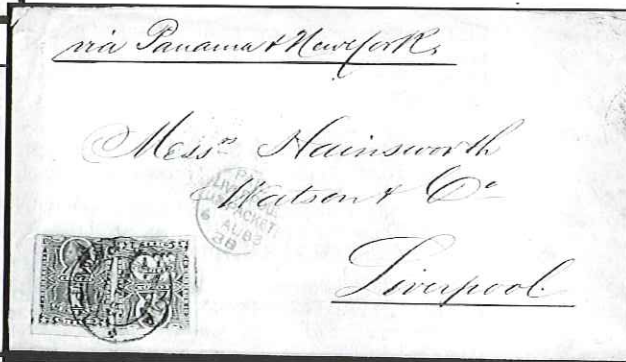 via Panama & New York,
Messrs Hainsworth
Watson & Co
Liverpool.
PAID
LIVERPOOL
US PACKET
6 AU 83
3B